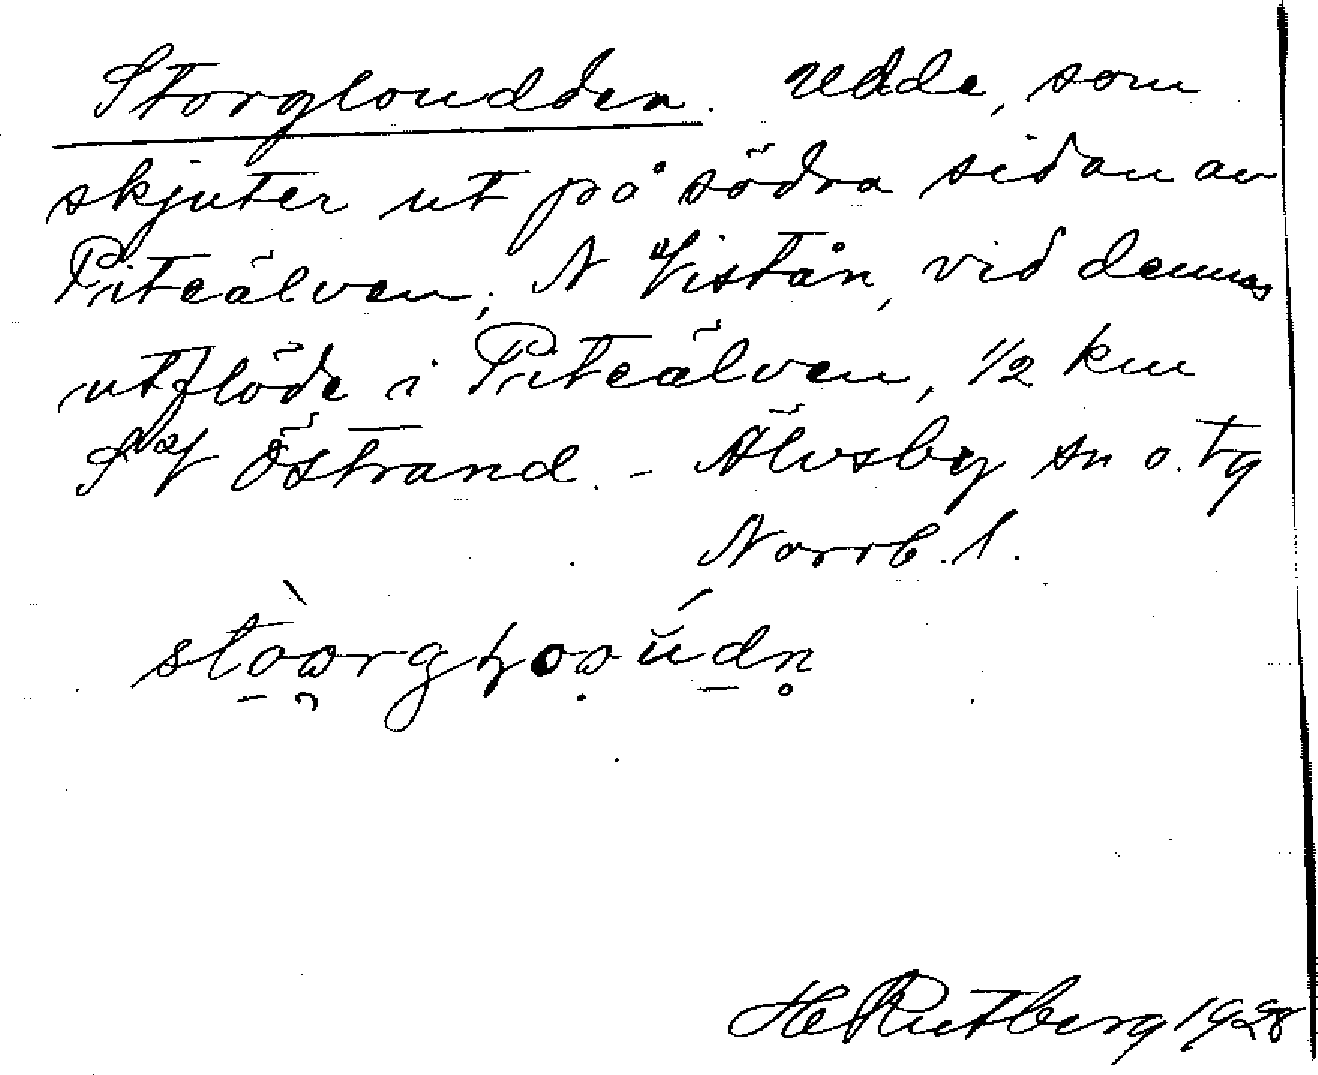 Storgloudden. Udde, som
skjuter ut på södra sidan av
Piteälven, N Vistån, vid dennas
utflöde i Piteälven, 1/2 km
S of Östrand. - Älvsby sn o. tg
Norrb. l.
H Rutberg 1928